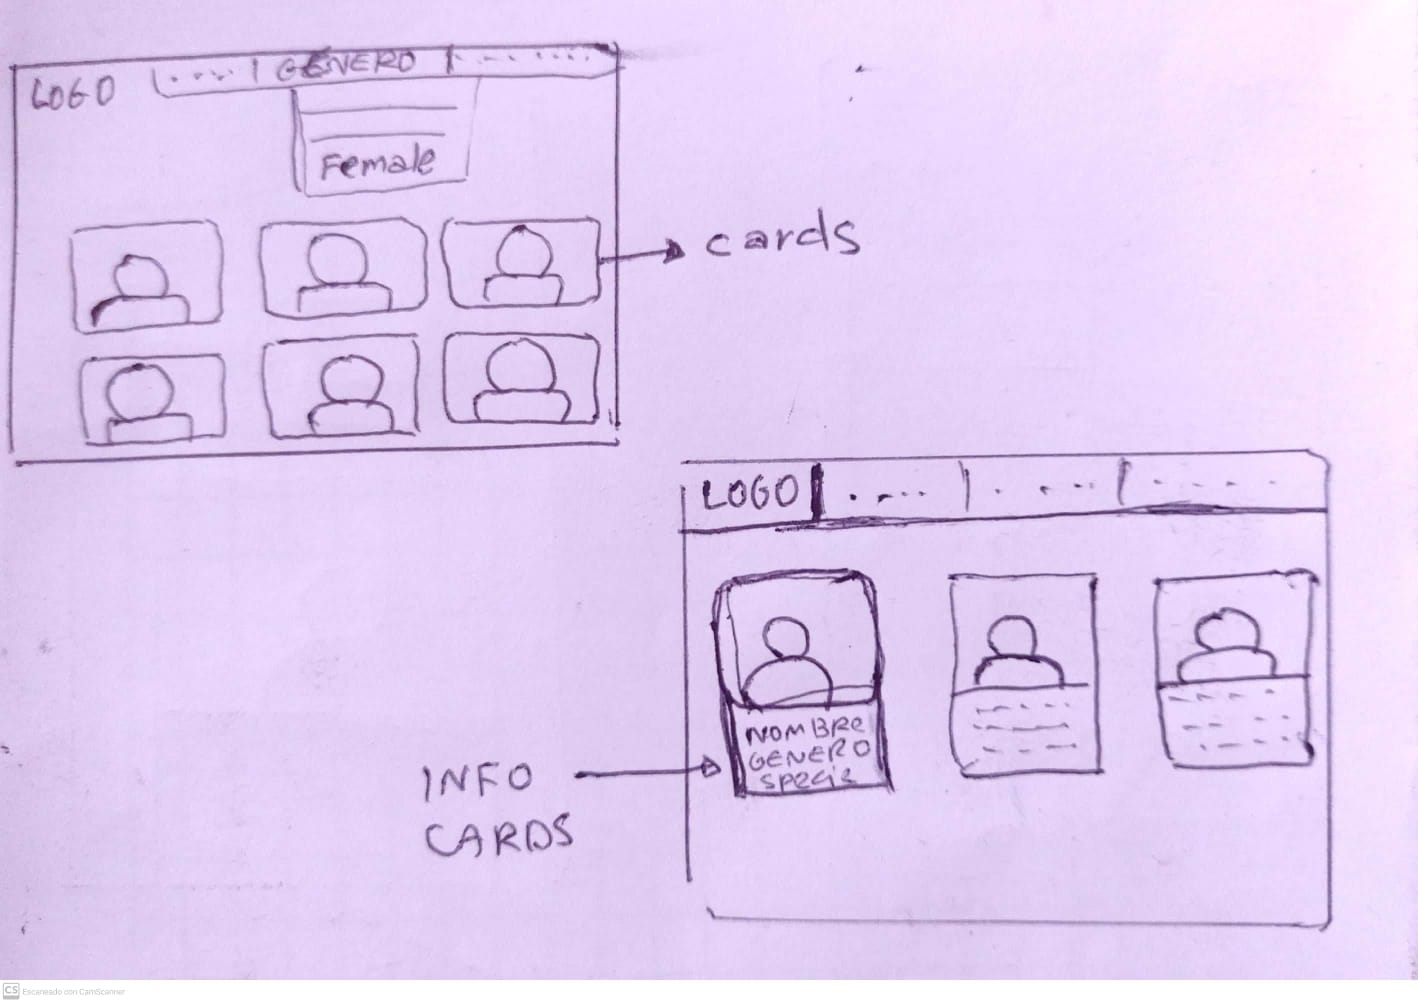 LOGO
GENERO
Female
cards
LOGO
NOMBRE
GENERO
specie
INFO
CARDS
CS Escaneado con CamScanner